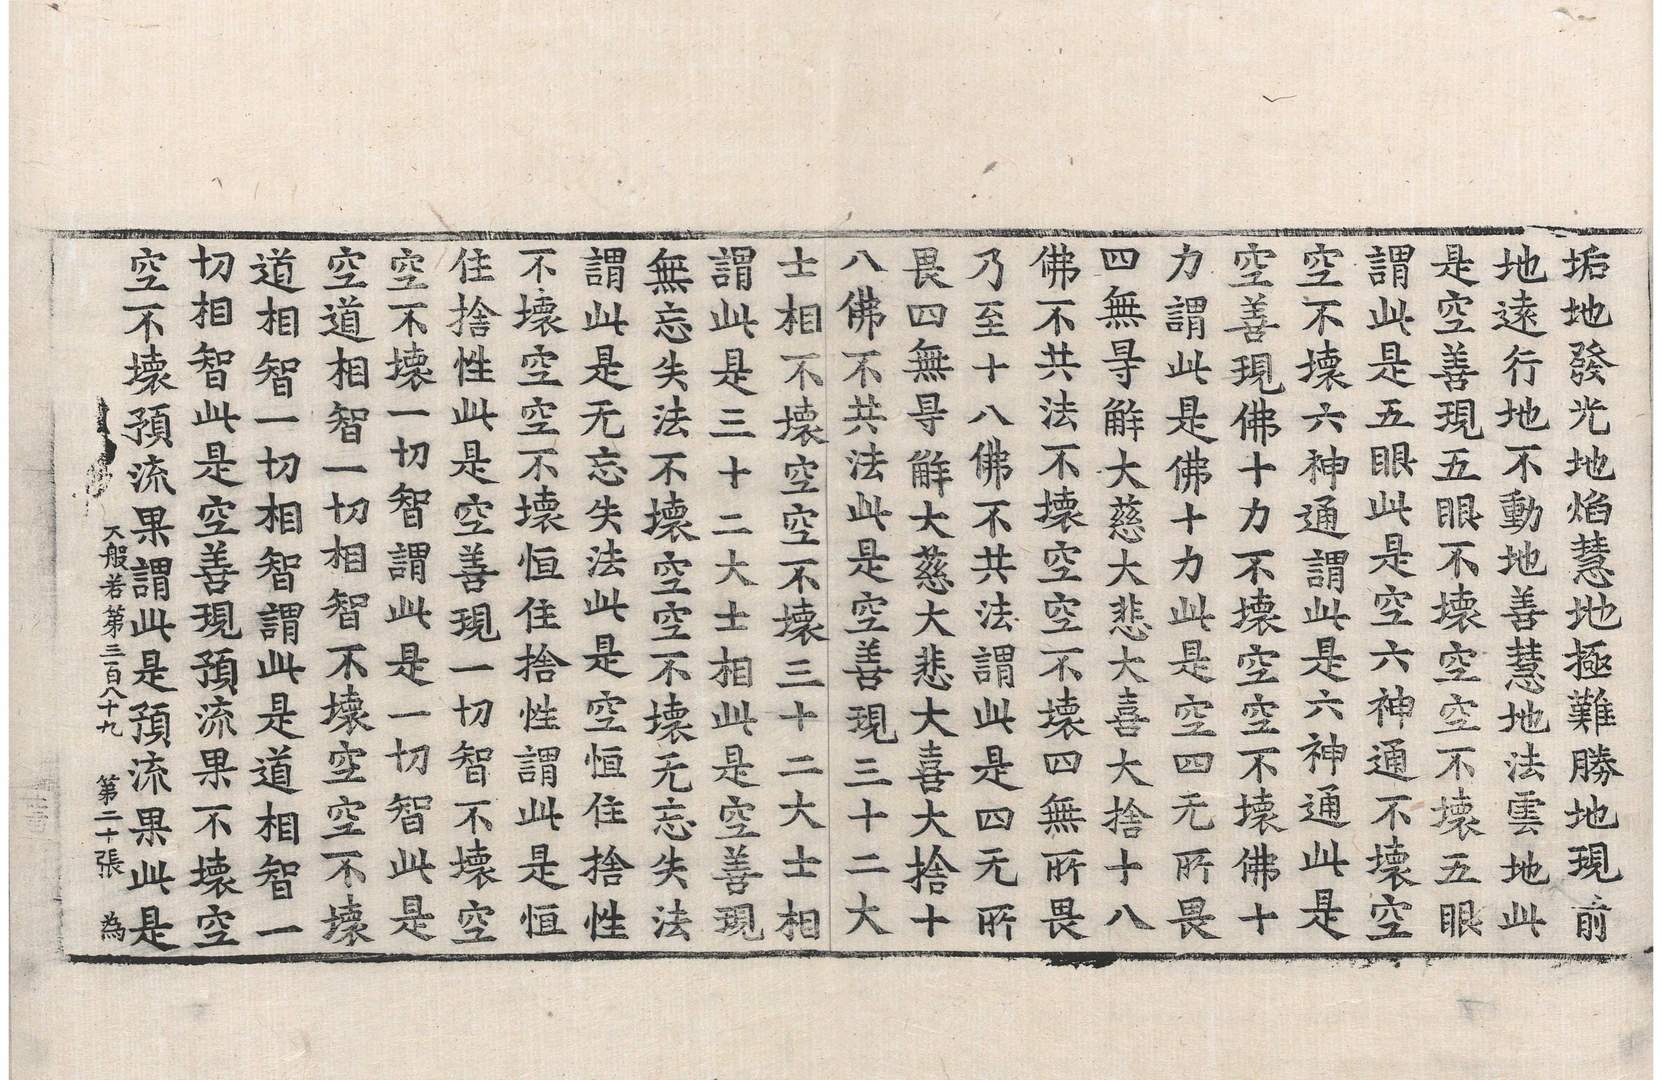 垢地發光地焰慧地極難勝地現前
地遠行地不動地善慧地法雲地此
是空善現五眼不壞空空不壞五眼
謂此是五眼此是空六神通不壞空
空不壞六神通謂此是六神通此是
空善現佛十力不壞空空不壞佛十
力謂此是佛十力此是空四无所畏
四無㝵解大慈大悲大喜大捨十八
佛不共法不壞空空不壞四無所畏
乃至十八佛不共法謂此是四无所
畏四無㝵解大慈大悲大喜大捨十
八佛不共法此是空善現三十二大
士相不壞空空不壞三十二大士相
謂此是三十二大士相此是空善現
無忘失法不壞空空不壞无忘失法
謂此是无忘失法此是空恒住捨性
不壞空空不壞恒住捨性謂此是恒
住捨性此是空善現一切智不壞空
空不壞一切智謂此是一切智此是
空道相智一切相智不壞空空不壞
道相智一切相智謂此是道相智一
切相智此是空善現預流果不壞空
空不壞預流果謂此是預流果此是
大般若第三百八十九 第二十張 為